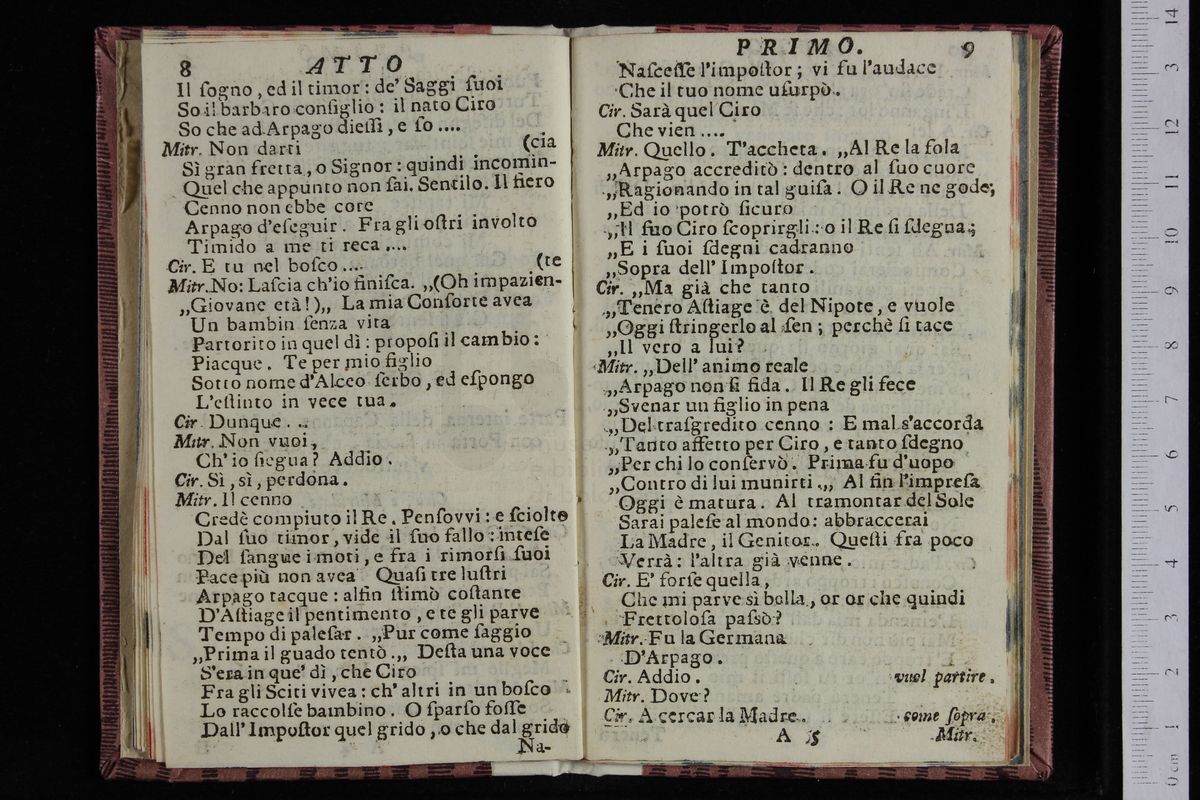 8 ATTO
Il ſogno, ed il timor: de' Saggi ſuoi
So il barbaro conſiglio: il nato Ciro
So che ad Arpago dieſſi, e ſo....
Mitr. Non darti (cia
Sì gran fretta, o Signor: quindi incomin-
Quel che appunto non ſai. Sentilo. Il fiero
Cenno non ebbe core
Arpago d'eſeguir. Fra gli oſtri involto
Timido a me ti reca....
Cir. E tu nel boſco.... (te
Mitr. No: Laſcia ch'io finiſca. „(Oh impazien-
„Giovane età!)„ La mia Conſorte avea
Un bambin ſenza vita
Partorito in quel dì: propoſi il cambio:
Piacque. Te per mio figlio
Sotto nome d'Alceo ſerbo, ed eſpongo
L'eſtinto in vece tua.
Cir. Dunque...
Mitr. Non vuoi,
Ch' io ſiegua? Addio.
Cir. Sì, sì, perdona.
Mitr. Il cenno
Credè compiuto il Re. Penſovvi: e ſciolto
Dal ſuo timor, vide il ſuo fallo: inteſe
Del ſangue i moti, e fra i rimorſi ſuoi
Pace più non avea Quaſi tre luſtri
Arpago tacque: alfin ſtimò coſtante
D'Aſtiage il pentimento, e te gli parve
Tempo di paleſar. „Pur come ſaggio
„Prima il guado tentò.„ Deſta una voce
S'era in que' dì, che Ciro
Fra gli Sciti vivea: ch' altri in un boſco
Lo raccolſe bambino. O ſparſo foſſe
Dall' Impoſtor quel grido, o che dal grido
Na-
PRIMO. 9
Naſceſſe l'impoſtor; vi fu l'audace
Che il tuo nome uſurpò.
Cir. Sarà quel Ciro
Che vien....
Mitr. Quello. T'accheta. „Al Re la fola
„Arpago accreditò: dentro al ſuo cuore
„Ragionando in tal guiſa. O il Re ne gode;
„Ed io potrò ſicuro
„Il ſuo Ciro ſcoprirgli: o il Re ſi ſdegna;
„E i ſuoi ſdegni cadranno
„Sopra dell' Impoſtor.
Cir. „Ma già che tanto
„Tenero Aſtiage è del Nipote, e vuole
„Oggi ſtringerlo al ſen; perchè ſi tace
„Il vero a lui?
Mitr. „Dell' animo reale
„Arpago non ſi fida. Il Re gli fece
„Svenar un figlio in pena
„Del traſgredito cenno: E mal s'accorda
„Tanto affetto per Ciro, e tanto ſdegno
„Per chi lo conſervò. Prima fu d'uopo
„Contro di lui munirti.„ Al fin l'impreſa
Oggi è matura. Al tramontar del Sole
Sarai paleſe al mondo: abbraccerai
La Madre, il Genitor. Queſti fra poco
Verrà: l'altra già venne.
Cir. E' forſe quella,
Che mi parve sì bella, or or che quindi
Frettoloſa paſsò?
Mitr. Fu la Germana
D'Arpago.
Cir. Addio. vuol partire.
Mitr. Dove?
Cir. A cercar la Madre. come ſopra.
A 5 Mitr.
14
3
12
11
10
9
8
7
6
5
4
3
2
1
0 cm